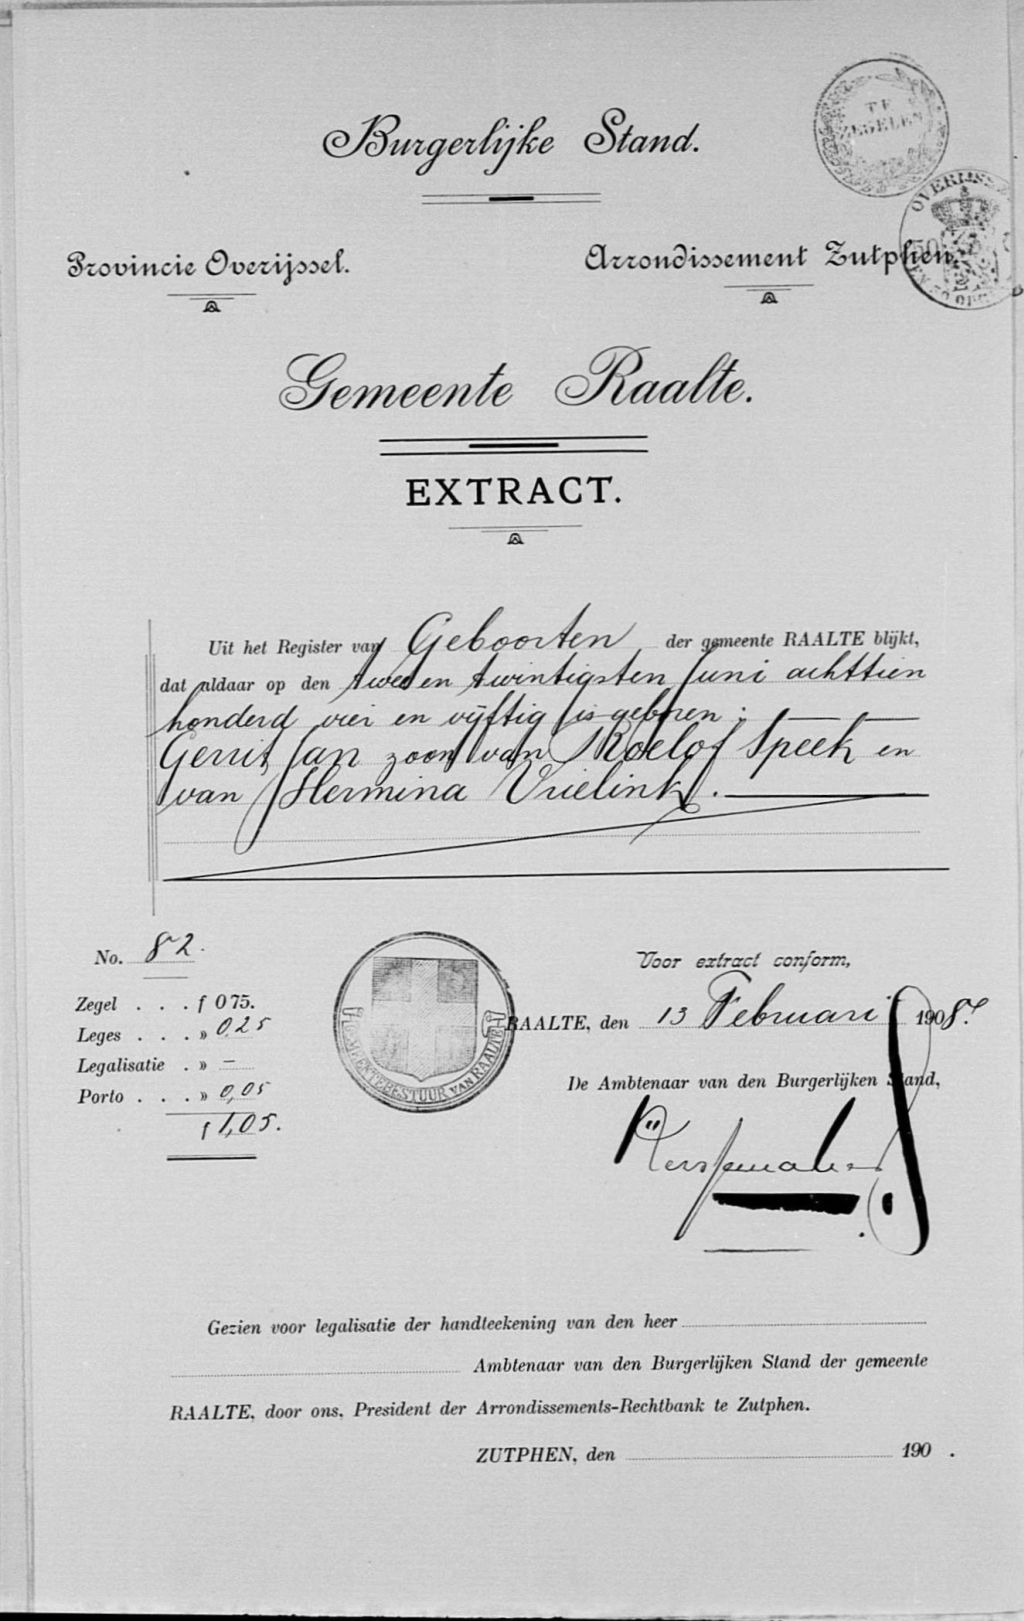 TE
ZEGELEN
Burgerlijke Stand.
OVERIJSS
50
Provincie Overijssel.
Arrondissement Zutphen.
Gemeente Raalte.
EXTRACT.
Uit het Register van Geboorten der gemeente RAALTE blijkt,
dat aldaar op den twee en twintigsten Juni achttien
honderd vier en vijftig is geboren :
Gerrit Jan zoon van Roelof Speek en
van Hermina Vrielink.
No. 82.
Zegel . . . f 0 75.
Leges . . . » 0,25
Legalisatie . » —
Porto . . . » 0,05
f 1,05.
GEMEENTEBESTUUR VAN RAALTE
Voor extract conform,
RAALTE, den 13 Februari 1908.
De Ambtenaar van den Burgerlijken Stand,
Gezien voor legalisatie der handteekening van den heer
Ambtenaar van den Burgerlijken Stand der gemeente
RAALTE, door ons, President der Arrondissements-Rechtbank te Zutphen.
ZUTPHEN, den 190 .